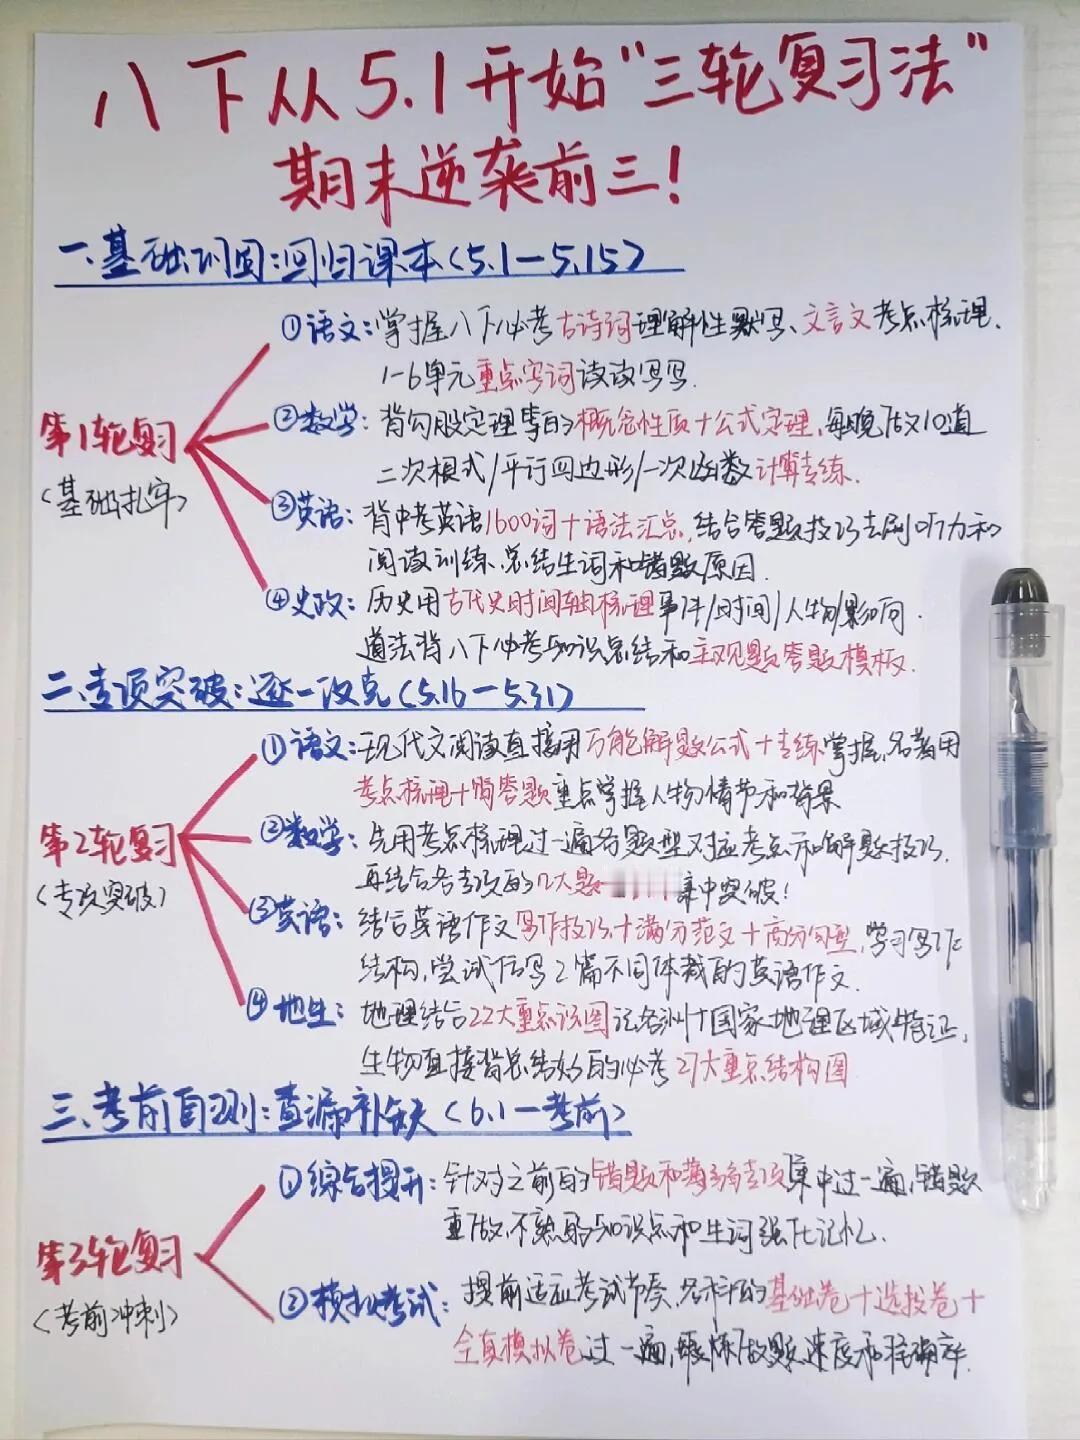 八下从5.1开始“三轮复习法”
期末逆袭前三!
一.基础巩固:回归课本(5.1—5.15)
第1轮复习
(基础扎牢)
①语文:掌握八下必考古诗词理解性默写、文言文考点梳理、
1-6单元重点字词读读写写.
②数学:背勾股定理等的概念性质+公式定理,每晚做10道
二次根式/平行四边形/一次函数计算专练.
③英语:背中考英语1600词+语法汇总,结合答题技巧去刷听力和
阅读训练,总结生词和错题原因.
④史政:历史用古代史时间轴梳理事件/时间/人物/影响.
道法背八下必考知识总结和主观题答题模板.
二.专项突破:逐一攻克(5.16—5.31)
第2轮复习
(专项突破)
①语文:现代文阅读直接用万能解题公式+专练掌握,名著用
考点梳理+简答题重点掌握人物情节和背景
②数学:先用考点梳理过一遍各题型对应考点和解题技巧,
再结合各专项的12大题 集中突破!
③英语:结合英语作文写作技巧+满分范文+高分句型,学习写作
结构,尝试仿写2篇不同体裁的英语作文.
④地生:地理结合22大重点识图记各洲+国家地理区域特征,
生物直接背总结好的必考27大重点结构图
三.考前自测:查漏补缺(6.1—考前)
第3轮复习
(考前冲刺)
①综合提升:针对之前的错题和薄弱专项集中过一遍,错题
重做,不熟的知识点和生词强化记忆.
②模拟考试:提前适应考试节奏,各科的基础卷+选拔卷+
全真模拟卷过一遍,锻炼做题速度和准确率.